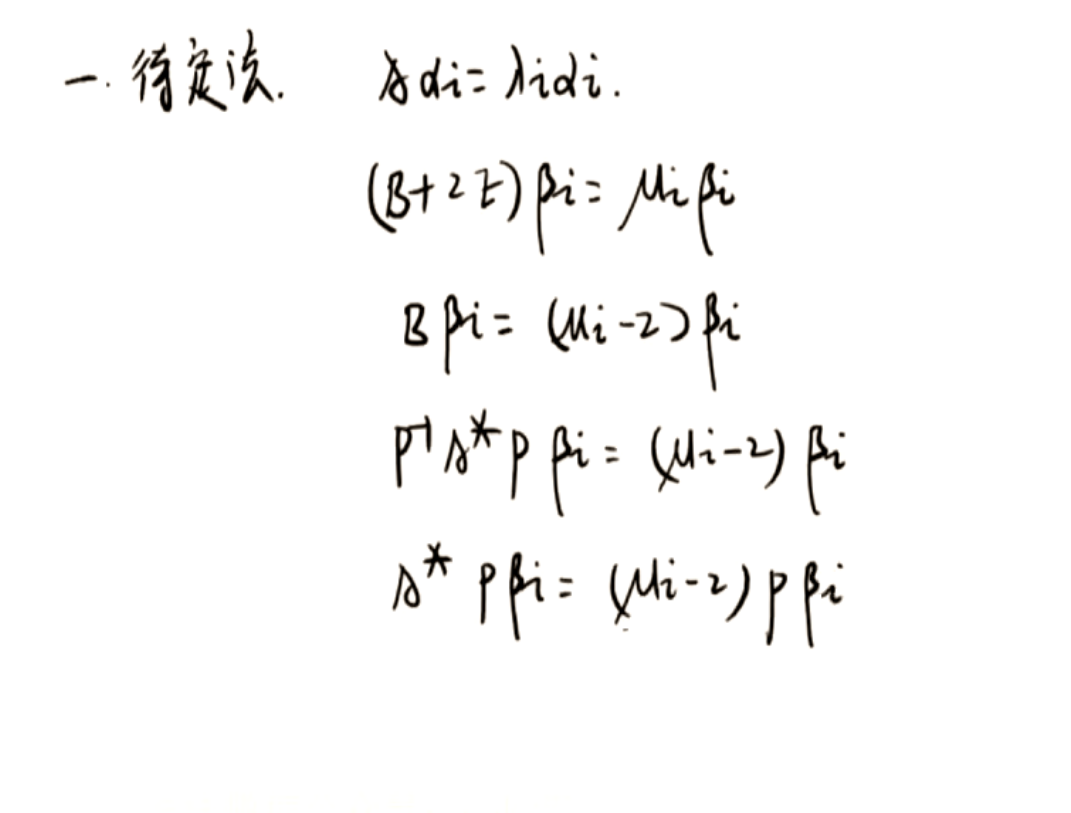 一. 待定法. Aαi = λiαi.
(B+2E)βi = μiβi
Bβi = (μi-2)βi
P⁻¹A*Pβi = (μi-2)βi
A*Pβi = (μi-2)Pβi